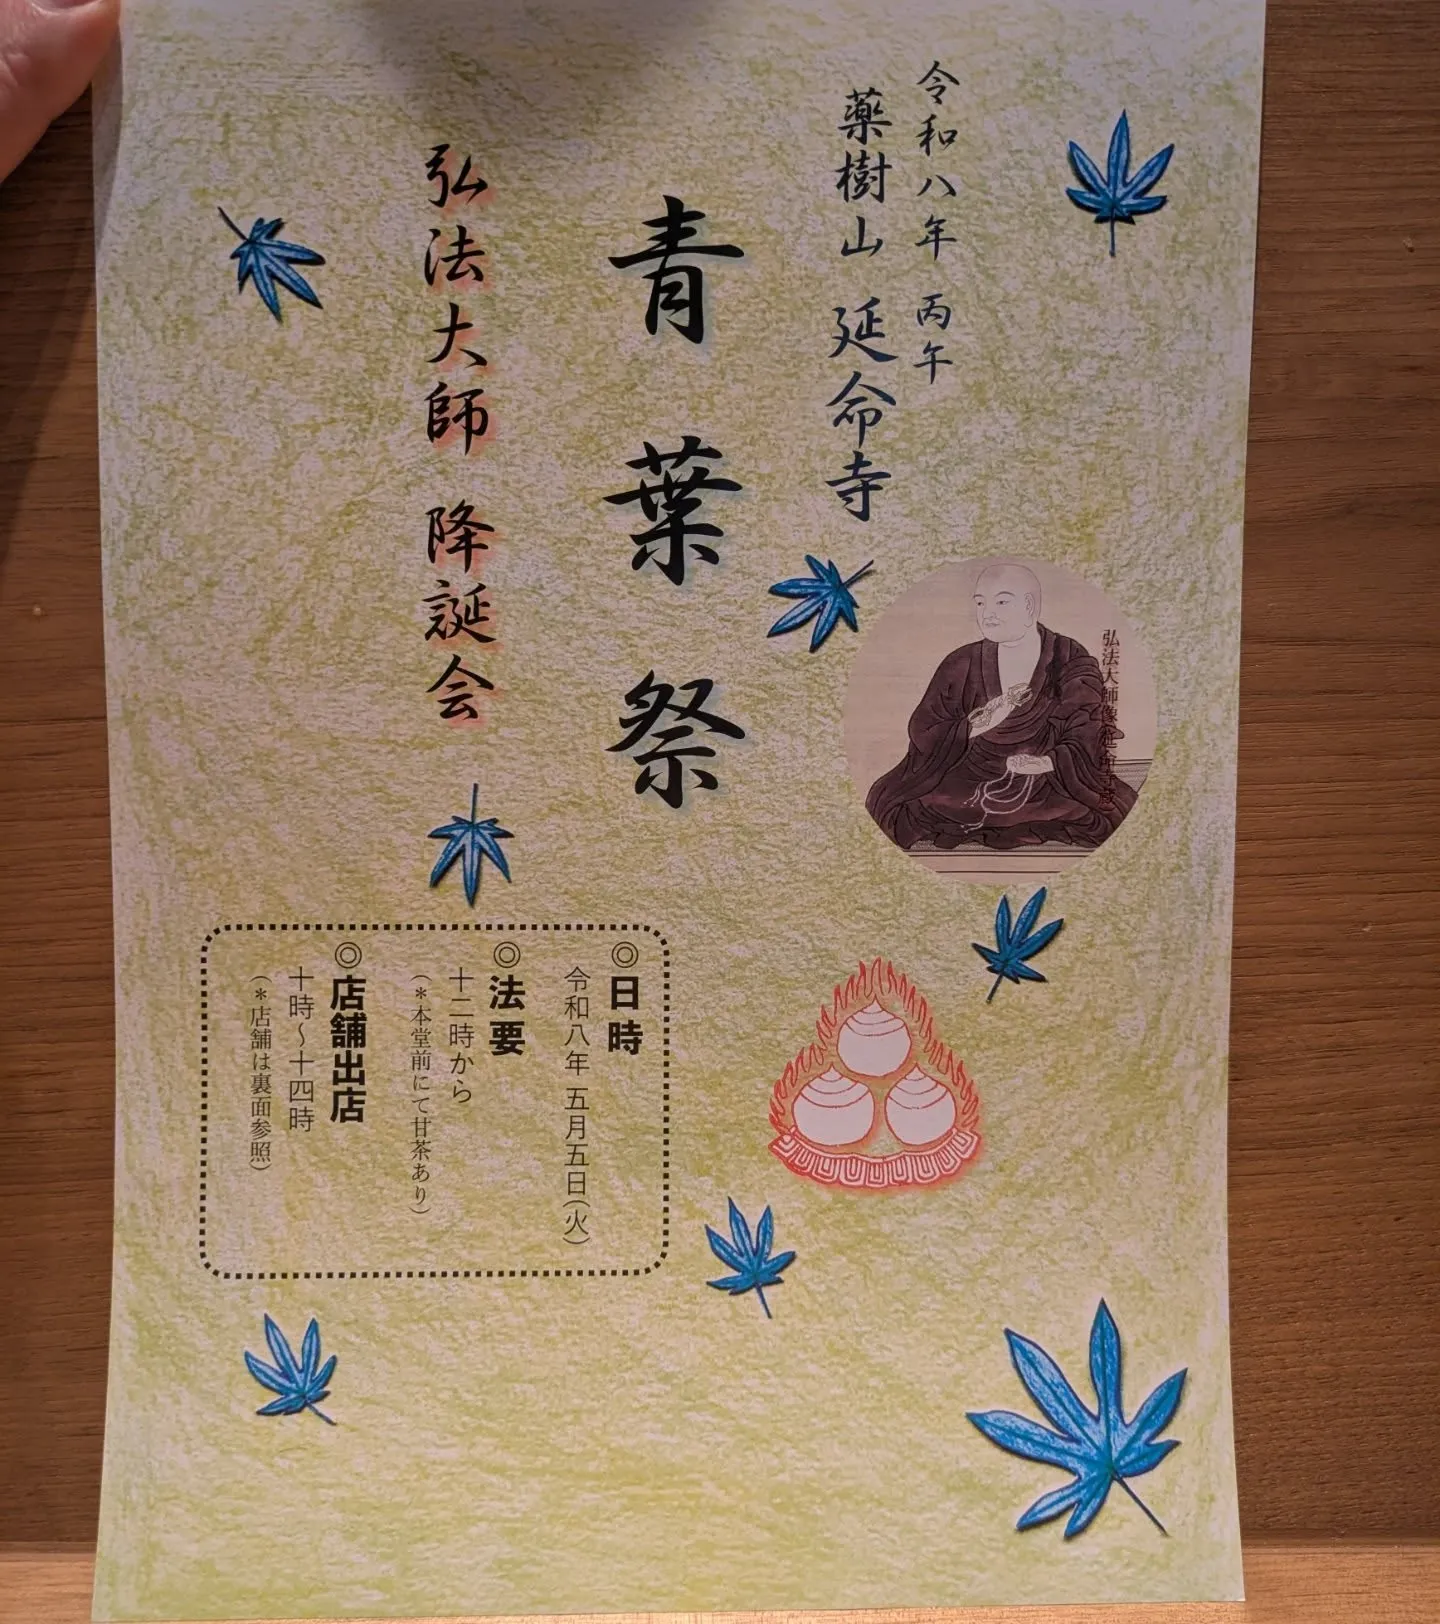 令和八年 丙午
薬樹山 延命寺
青葉祭
弘法大師 降誕会
弘法大師像(延命寺蔵)
◎日時
令和八年 五月五日(火)
◎法要
十二時から
(*本堂前にて甘茶あり)
◎店舗出店
十時〜十四時
(*店舗は裏面参照)